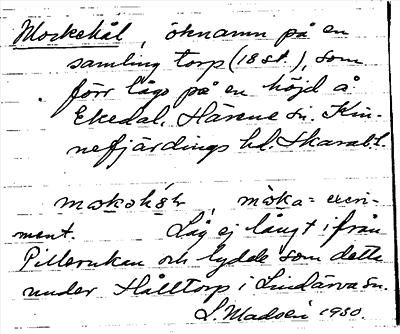 Mockehål, öknamn på en
samling torp (18 st.), som
förr lågo på en höjd å
Ekedal, Härene sn. Kin-
nefjärdings hd. Skarabl.
måka = excre-
ment. Låg ej långt ifrån
Pillerukan och lydde som detta
under Hålltorp i Lindärva sn.
S. Madsén 1930.